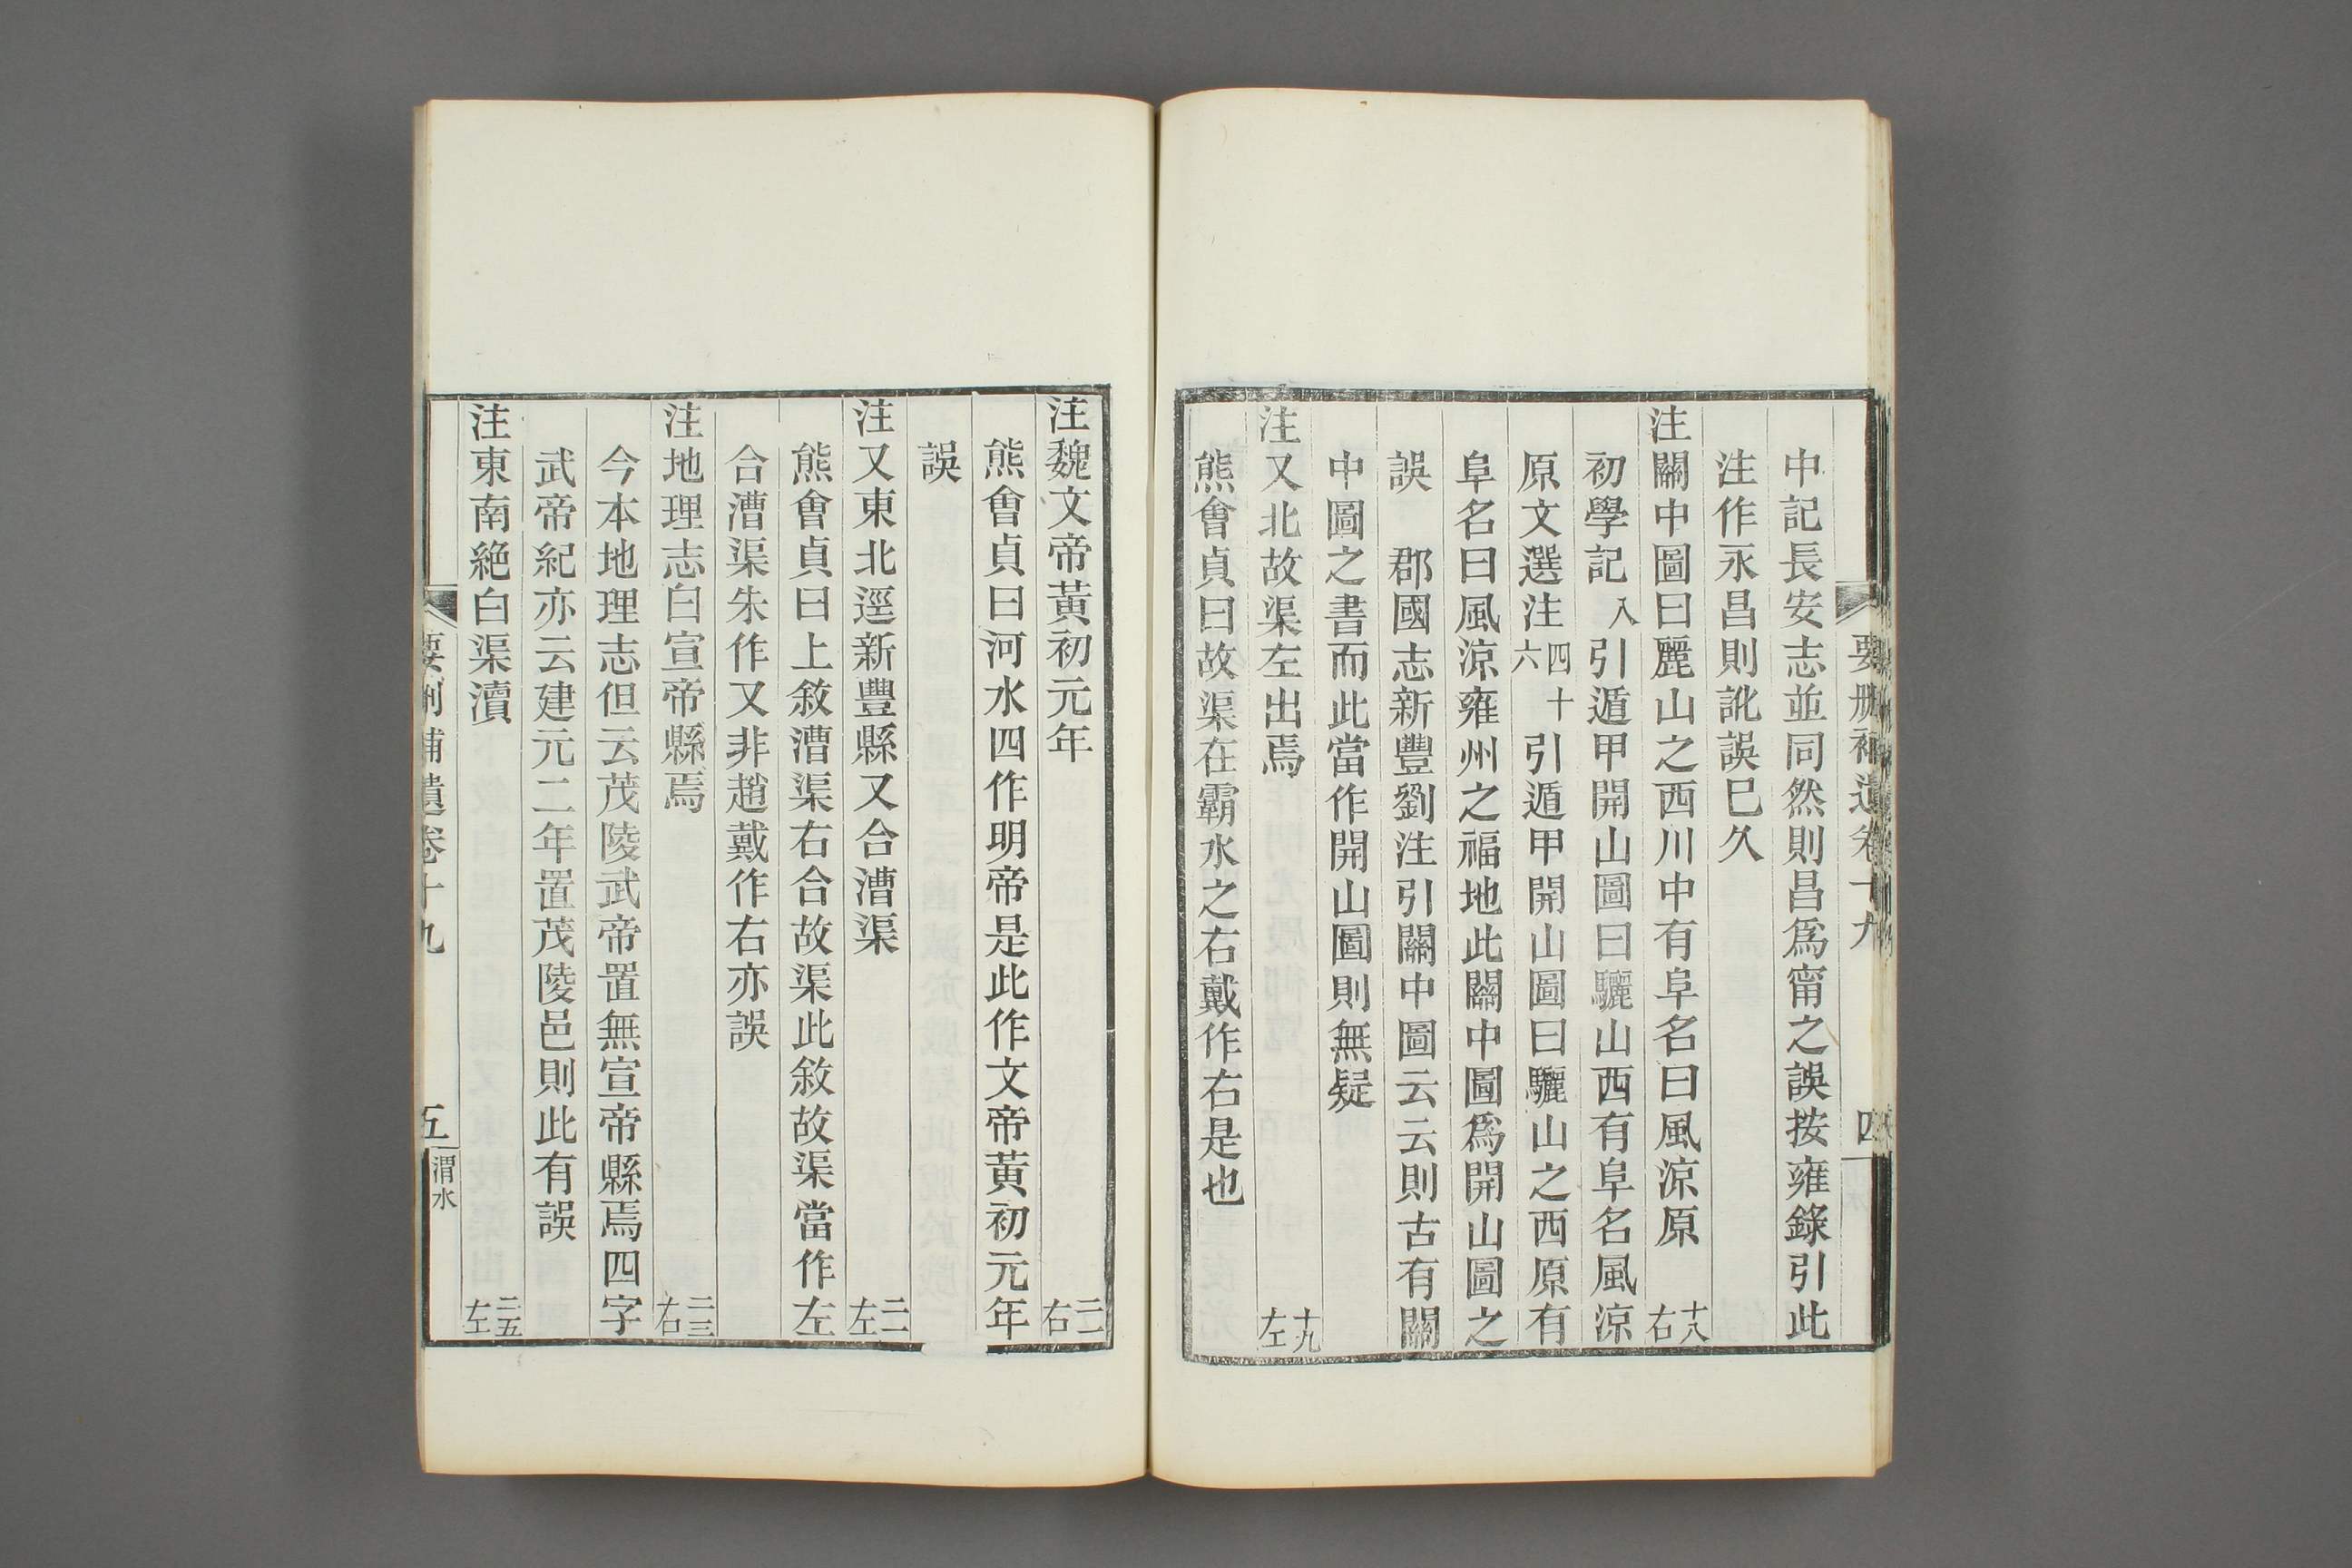 要刪補遺卷十九
四
中記長安志並同然則昌爲甯之誤按雍錄引此
注作永昌則訛誤巳久
注關中圖曰麗山之西川中有阜名曰風涼原 十八右
初學記八引遁甲開山圖曰驪山西有阜名風涼
原文選注四十六引遁甲開山圖曰驪山之西原有
阜名曰風涼雍州之福地此關中圖爲開山圖之
誤 郡國志新豐劉注引關中圖云云則古有關
中圖之書而此當作開山圖則無疑
注又北故渠左出焉 十九左
熊會貞曰故渠在霸水之右戴作右是也
注魏文帝黃初元年 二一右
熊會貞曰河水四作明帝是此作文帝黃初元年
誤
注又東北逕新豐縣又合漕渠 二一左
熊會貞曰上敘漕渠右合故渠此敘故渠當作左
合漕渠朱作又非趙戴作右亦誤
注地理志曰宣帝縣焉 二三右
今本地理志但云茂陵武帝置無宣帝縣焉四字
武帝紀亦云建元二年置茂陵邑則此有誤
注東南絕白渠瀆 二五左
要刪補遺卷十九
五
渭水